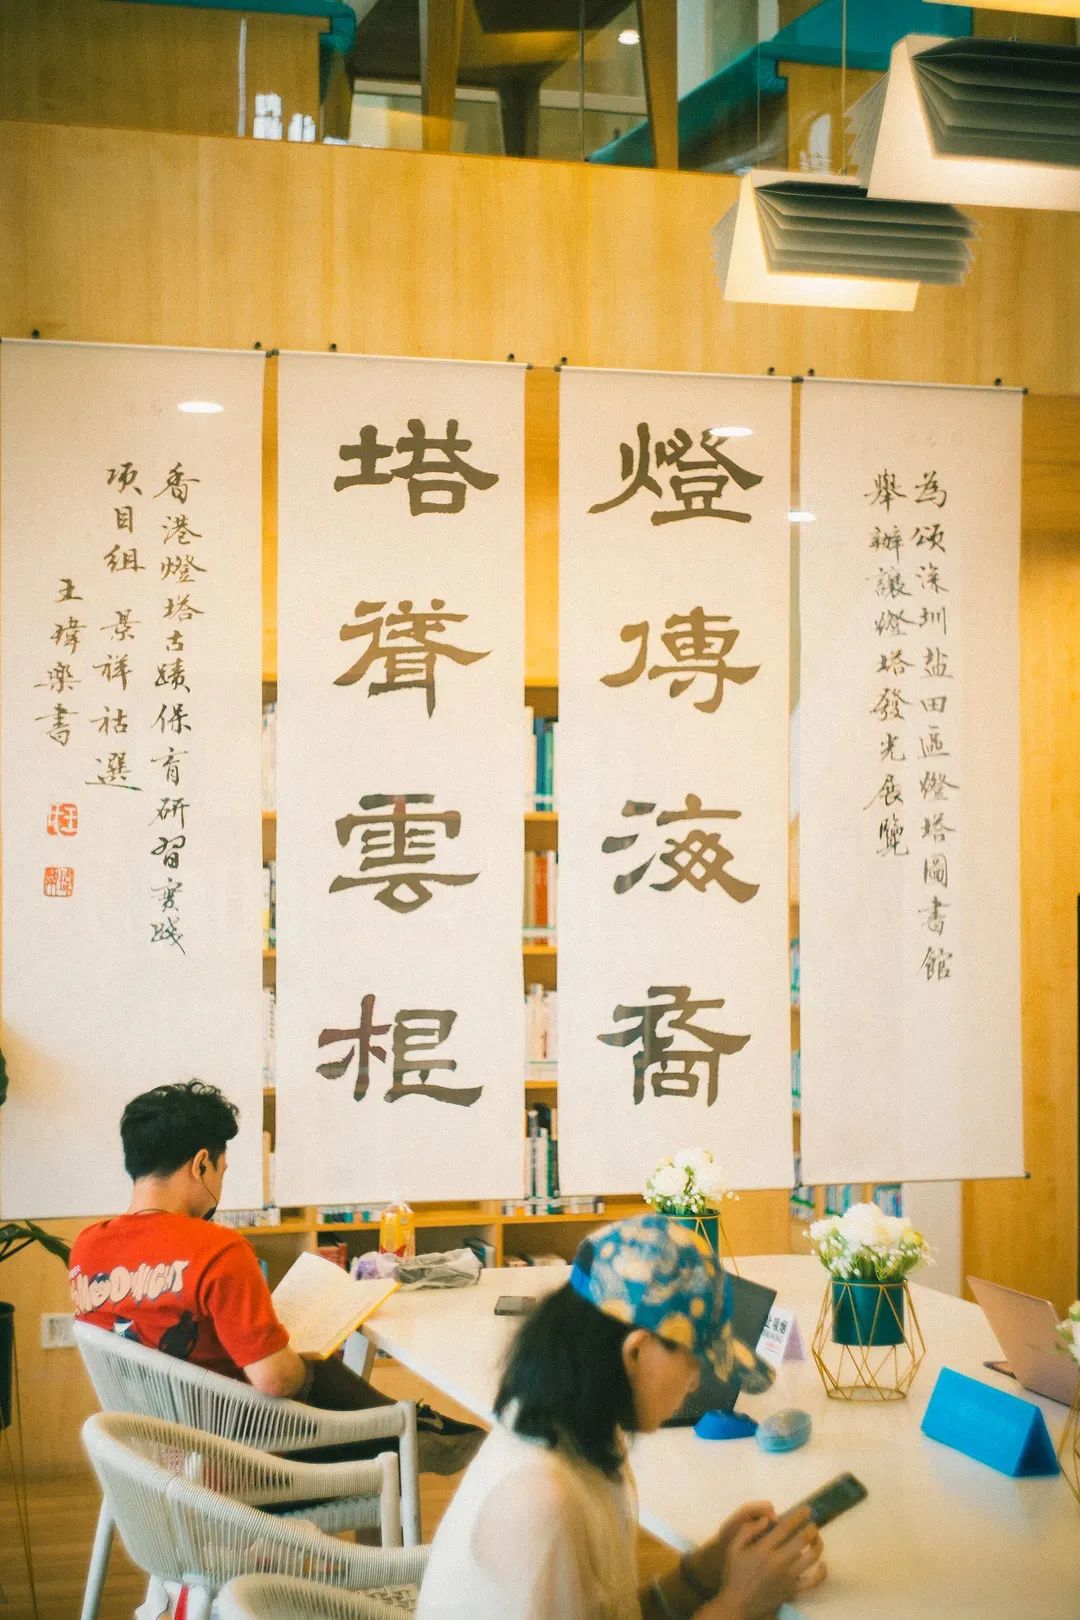 為頌深圳盐田區燈塔圖書館
舉辦讓燈塔發光展覽
燈傳海裔
塔聳雲根
香港燈塔古蹟保育研習實踐
项目組 景祥祜選
王瑋樂書